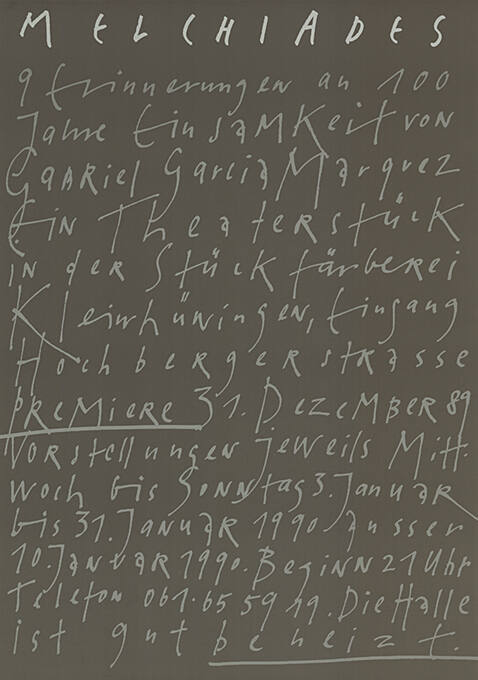 MELCHIADES
9 Erinnerungen an 100
Jahre Einsamkeit von
Gabriel Garcia Marquez
Ein Theaterstück
in der Stückfärberei
Kleinhüningen, Eingang
Hochbergerstrasse
Premiere 31. Dezember 89
Vorstellungen jeweils Mitt-
woch bis Sonntag 3. Januar
bis 31. Januar 1990 ausser
10. Januar 1990. Beginn 21 Uhr
Telefon 061·65 59 19. Die Halle
ist gut beheizt.